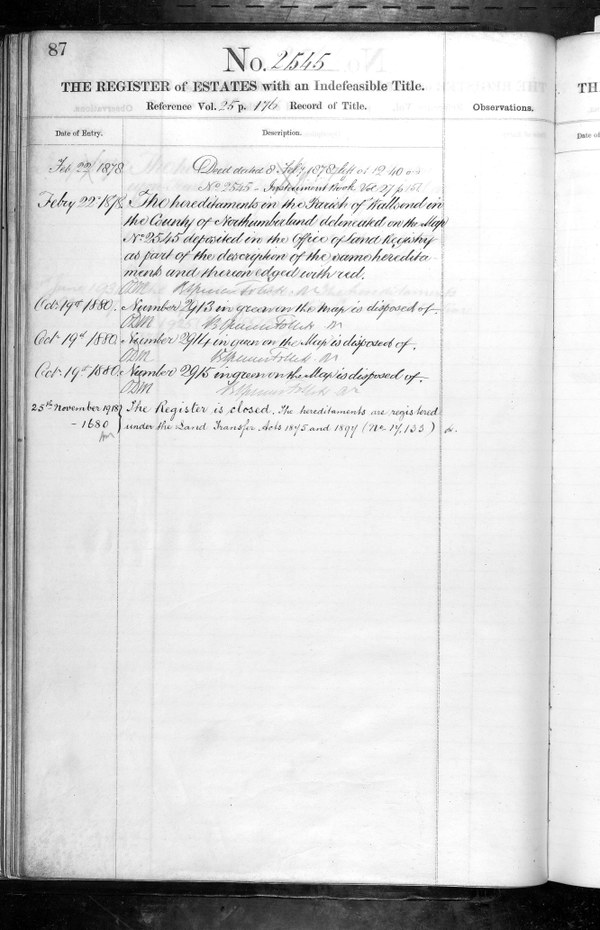 87
No. 2545
THE REGISTER of ESTATES with an Indefeasible Title.
Reference Vol. 25 p. 176 Record of Title.
Observations.
Date of Entry.
Description.
Feb 22/1878 Deed dated 8 Feby 1878 left at 12.40 on
No 2545 - Instrument Book Vol 27 p
Feby 22nd 1878. The hereditaments in the Parish of Wallsend in
the County of Northumberland delineated on the Map
No 2545 deposited in the Office of Land Registry
as part of the description of the same heredita-
ments and thereon edged with red.
Octr 19th 1880. Number 2913 in green on the map is disposed of.
Octr 19th 1880 Number 2914 in green on the Map is disposed of.
Octr 19th 1880. Number 2915 in green on the Map is disposed of.
25th November 1918 } The Register is closed. The hereditaments are registered
- 1680 } under the Land Transfer Acts 1875 and 1897 (No 17,133)
TH
Date of